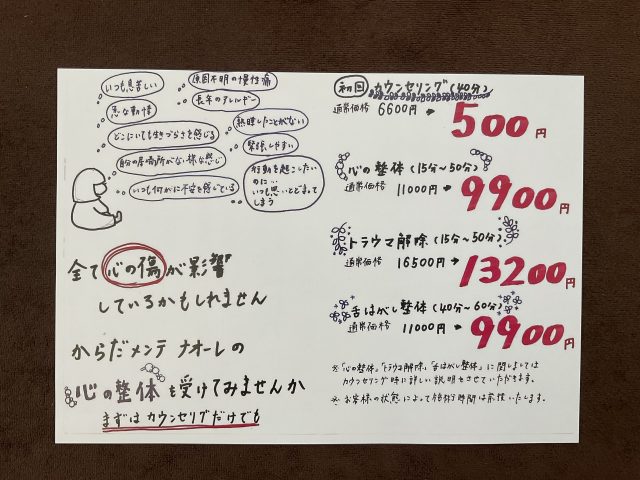 いつも息苦しい
原因不明の慢性痛
急な動悸
長年のアレルギー
どこにいても生きづらさを感じる
熟睡したことがない
自分の居場所がない様な感じ
緊張しやすい
いつも何かに不安を感じている
行動を起こしたい
のに…
いつも思いとどまって
しまう
全て心の傷が影響
しているかもしれません
からだメンテ ナオーレの
心の整体を受けてみませんか
まずはカウンセリングだけでも
初回 カウンセリング(40分)
通常価格 6600円 → 500円
心の整体(15分~50分)
通常価格 11000円 → 9900円
トラウマ解除(15分~50分)
通常価格 16500円 → 13200円
舌はがし整体(40分~60分)
通常価格 11000円 → 9900円
※「心の整体」「トラウマ解除」「舌はがし整体」に関しましては
カウンセリング時に詳しい説明をさせていただきます。
※お客様の状態によって施術時間は前後いたします。